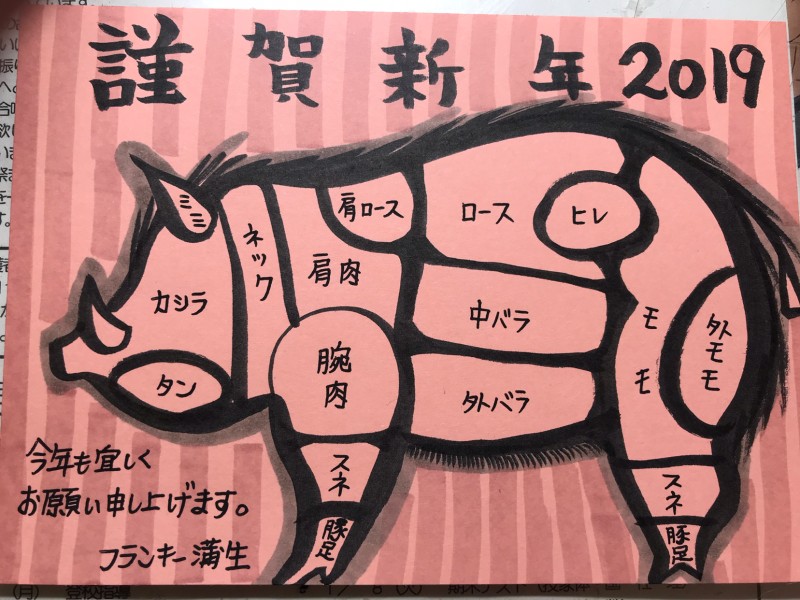 謹賀新年2019
ミミ
ネック
肩ロース
ロース
ヒレ
肩肉
カシラ
中バラ
モモ
外モモ
腕肉
タン
外バラ
スネ
豚足
スネ
豚足
今年も宜しく
お願い申し上げます。
フランキー蒲生